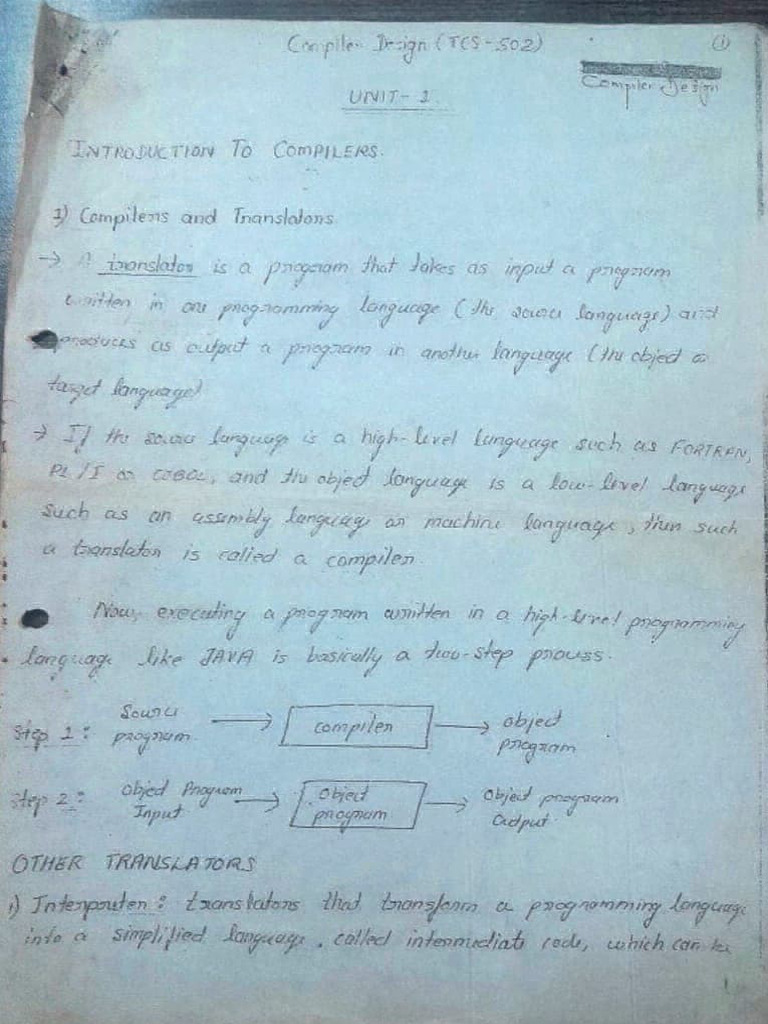 Compiler Design (TCS-502)
①
Compiler Design
UNIT-1
INTRODUCTION TO COMPILERS.
1) Compilers and Translators
→ A translator is a program that takes as input a program
written in one programming language (the source language) and
produces as output a program in another language (the object or
target language)
→ If the source language is a high-level language such as FORTRAN,
PL/I or COBOL, and the object language is a low-level language
such as an assembly language or machine language, then such
a translator is called a compiler.
Now, executing a program written in a high-level programming
language like JAVA is basically a two-step process.
Step 1: Source program → compiler → object program
Step 2: Object Program Input → Object program → Object program Output
OTHER TRANSLATORS
i) Interpreter: translators that transform a programming language
into a simplified language, called intermediate code, which can be